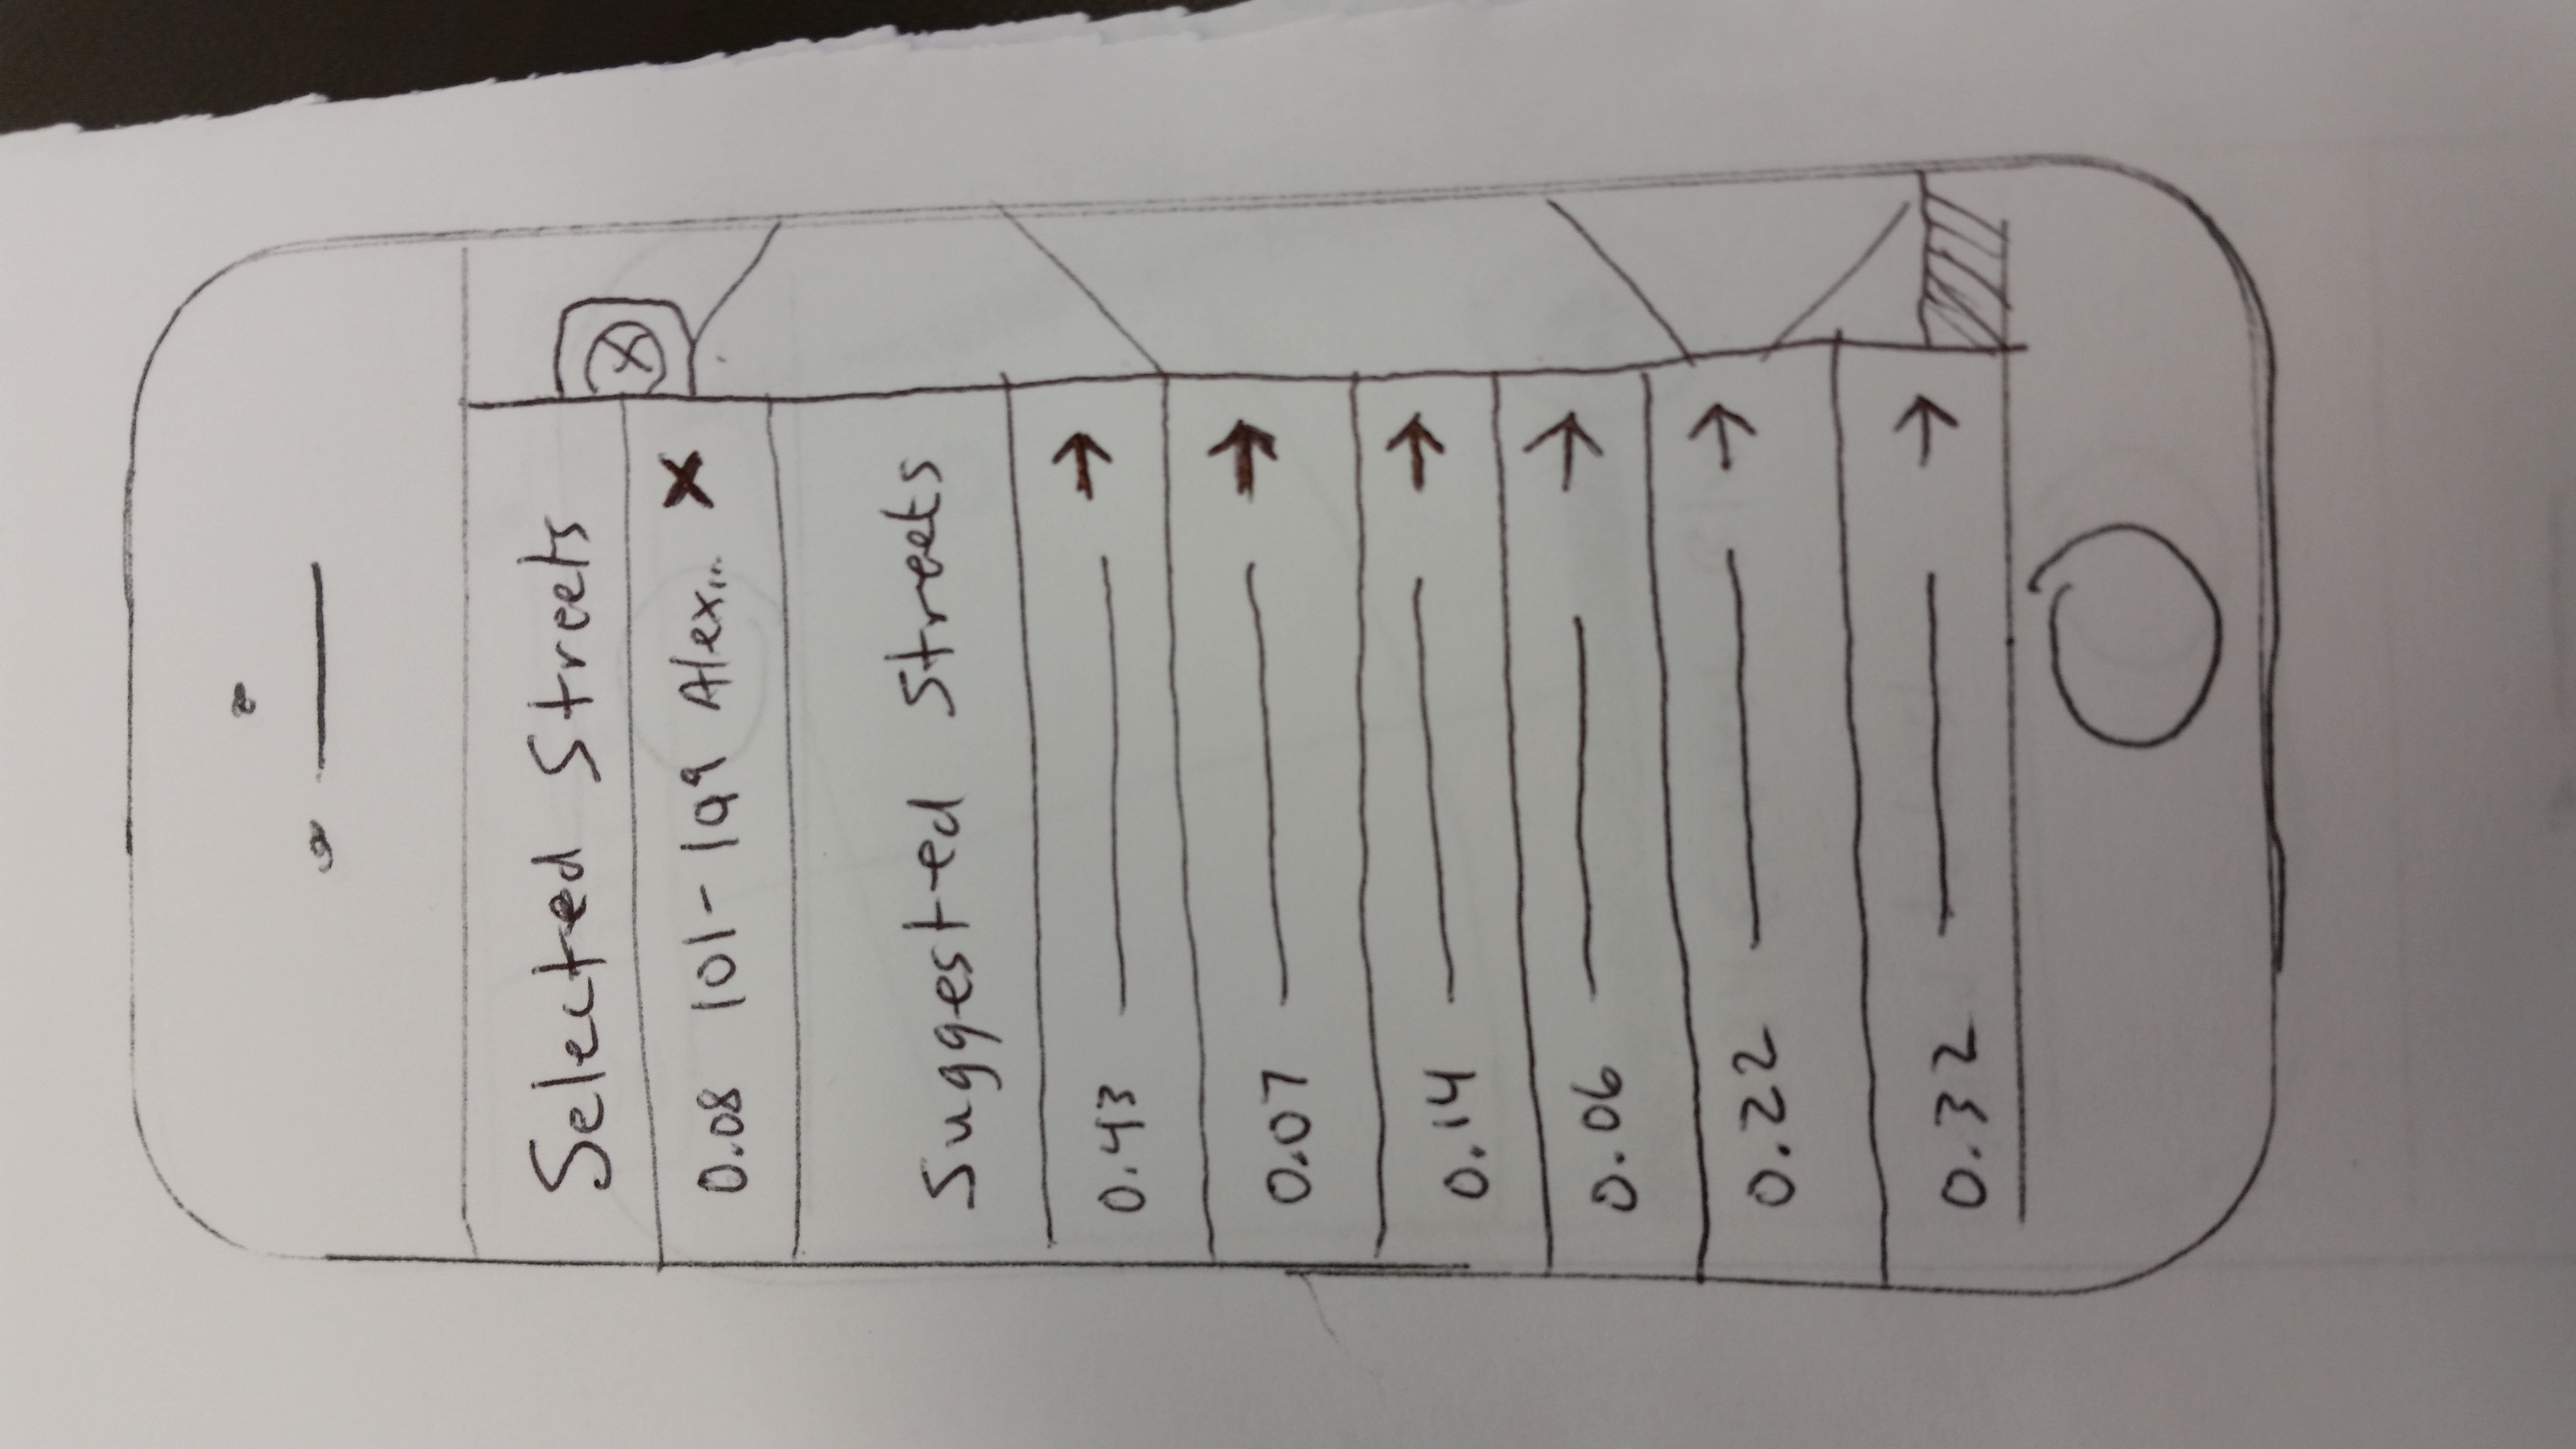 Selected Streets
0.08 101-199 Alex...
Suggested Streets
0.43
0.07
0.14
0.06
0.22
0.32